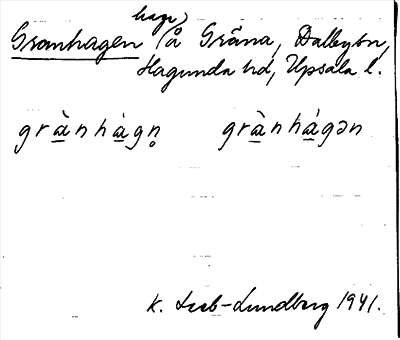 hage)
Granhagen (å Gräna, Dalbybn,
Hagunda hd, Upsala l.
grànhágn̥ grànhágən
K. Leeb-Lundberg 1941.